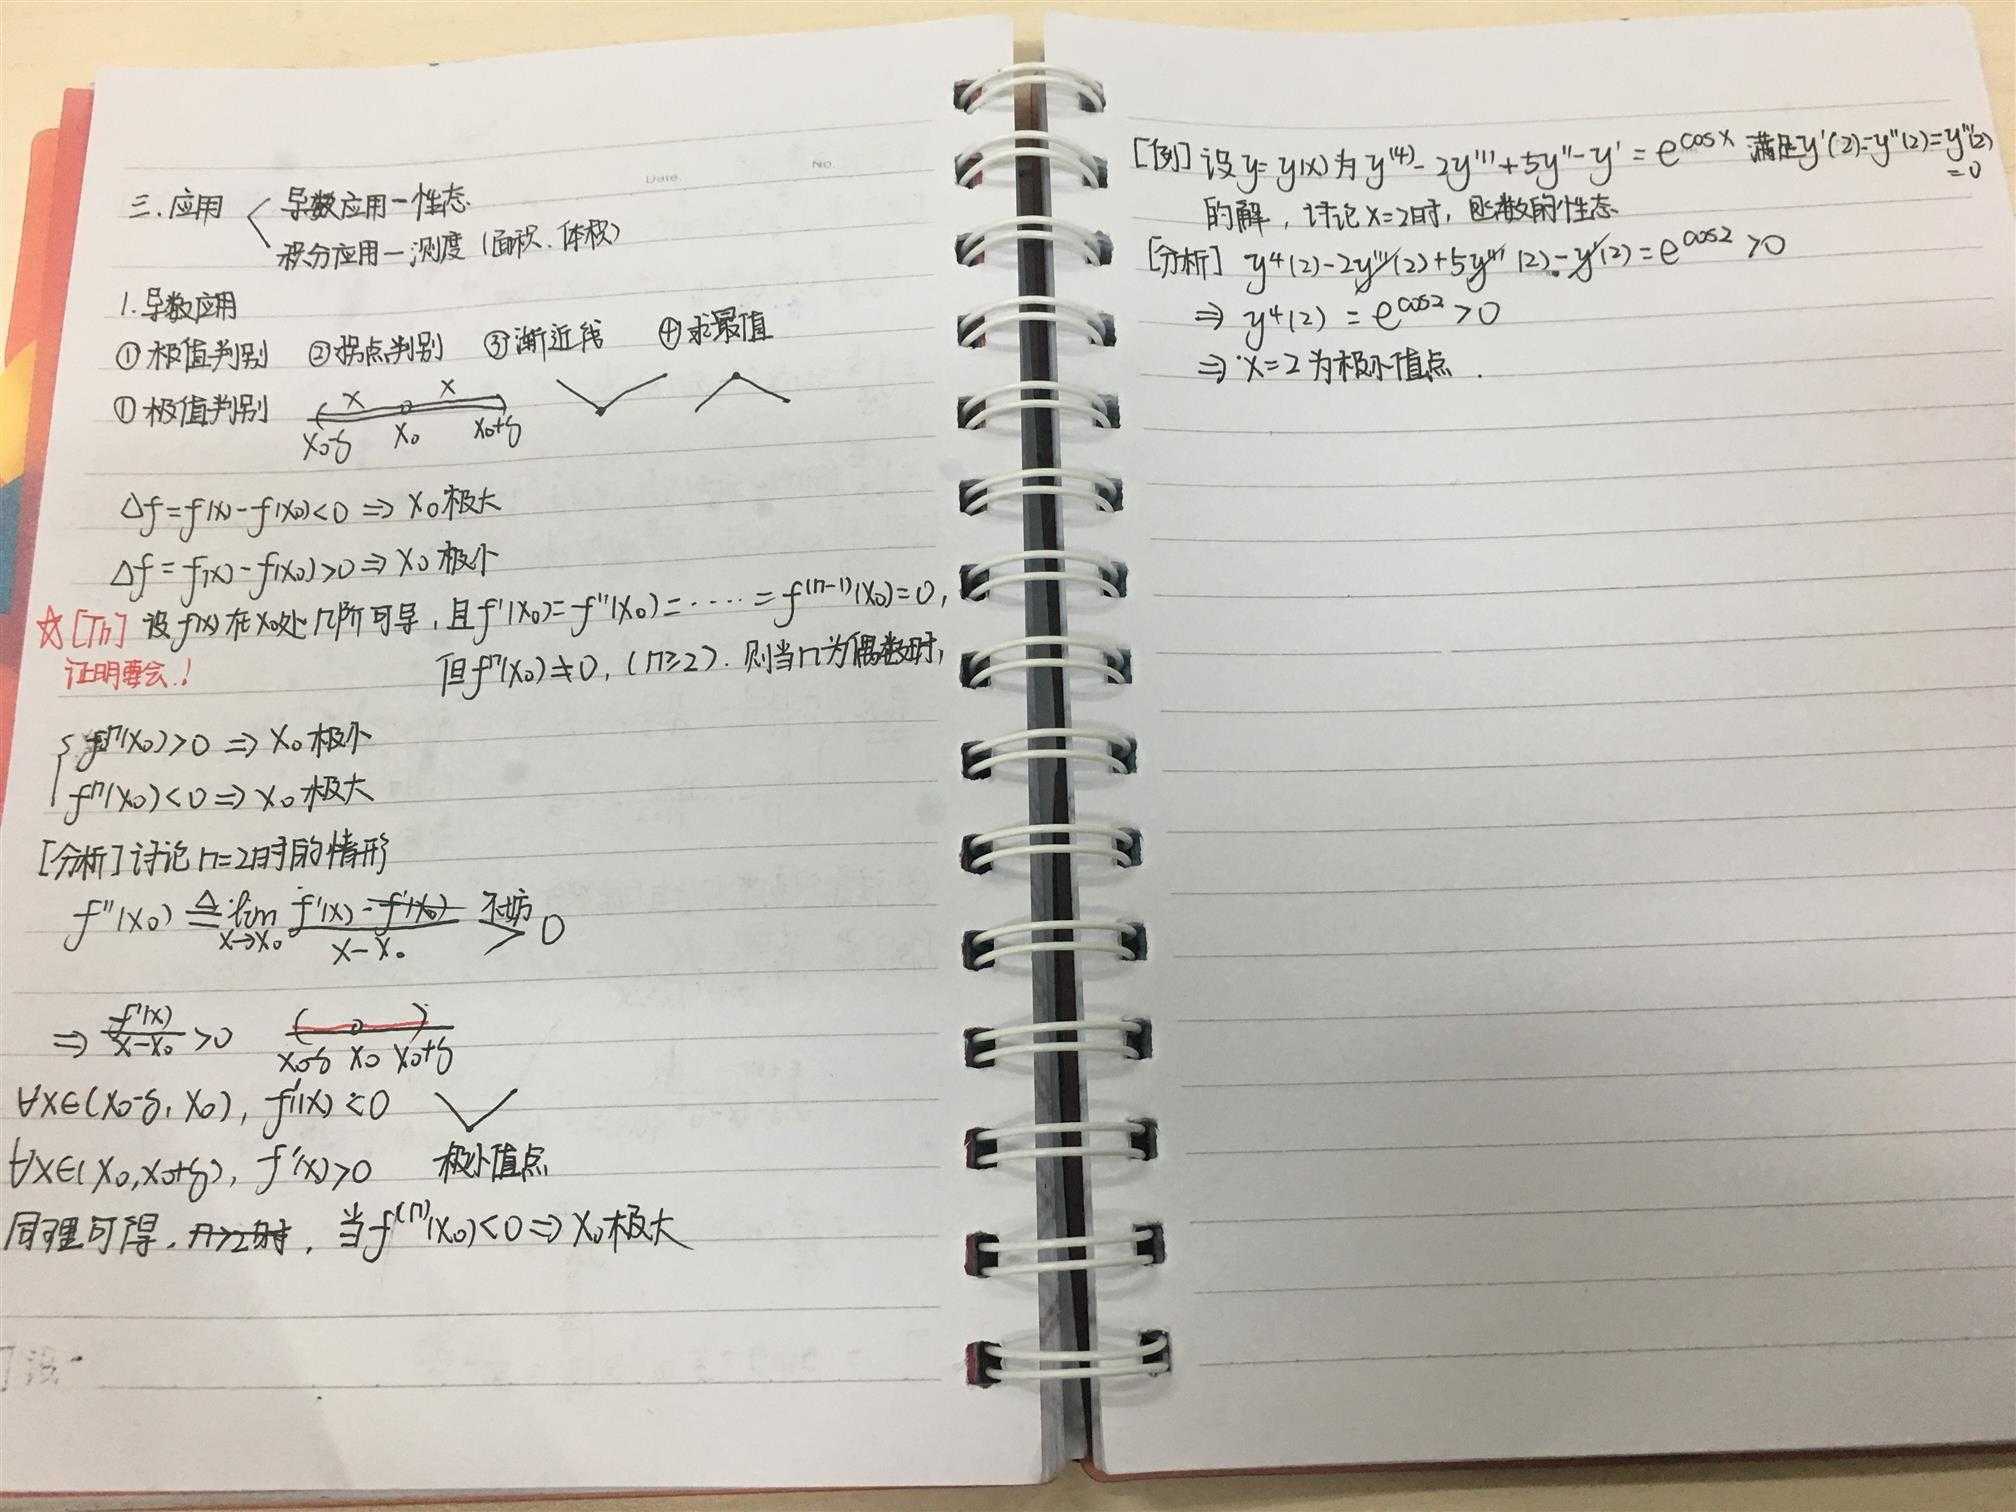 Date.
No.
三.应用 导数应用—性态
积分应用—测度(面积.体积)
1.导数应用
①极值判别 ②拐点判别 ③渐近线 ④求最值
①极值判别 x x
x₀-δ x₀ x₀+δ
Δf=f(x)-f(x₀)<0⇒x₀极大
Δf=f(x)-f(x₀)>0⇒x₀极小
☆[Th] 设f(x)在x₀处n阶可导,且f'(x₀)=f''(x₀)=·····=f⁽ⁿ⁻¹⁾(x₀)=0,
证明要会! 但fⁿ(x₀)≠0,(n≥2).则当n为偶数时,
fⁿ(x₀)>0⇒x₀极小
fⁿ(x₀)<0⇒x₀极大
[分析]讨论n=2时的情形
f''(x₀) ≜ lim x→x₀ (f'(x)-f'(x₀))/(x-x₀) 不妨 > 0
⇒ f'(x)/(x-x₀) >0
x₀-δ x₀ x₀+δ
∀x∈(x₀-δ,x₀), f'(x)<0
∀x∈(x₀,x₀+δ), f'(x)>0 极小值点
同理可得.n>2时,当f⁽ⁿ⁾(x₀)<0⇒x₀极大
[例]设y=y(x)为y⁽⁴⁾-2y'''+5y''-y'=e^cosx 满足y'(2)=y''(2)=y'''(2)
=0
的解,讨论x=2时,函数的性态
[分析] y⁴(2)-2y'''(2)+5y''(2)-y'(2)=e^cos2>0
⇒ y⁴(2)=e^cos2>0
⇒x=2为极小值点.